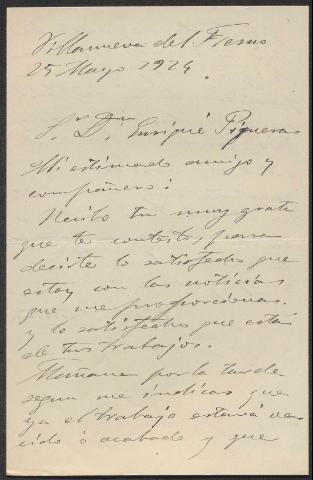 Villanueva del Fresno
25 Mayo 1924.
Sr. Dn. Enrique Piqueras
Mi estimado amigo y
compañero:
Recibo tu muy grata
que te contesto, para
decirte lo satisfecho que
estoy con las noticias
que me proporcionas.
y lo satisfecho que estás
de tus trabajos.
Mañana por la tarde
segun me indicas que
ya el trabajo estará ven
cido ó acabado y que